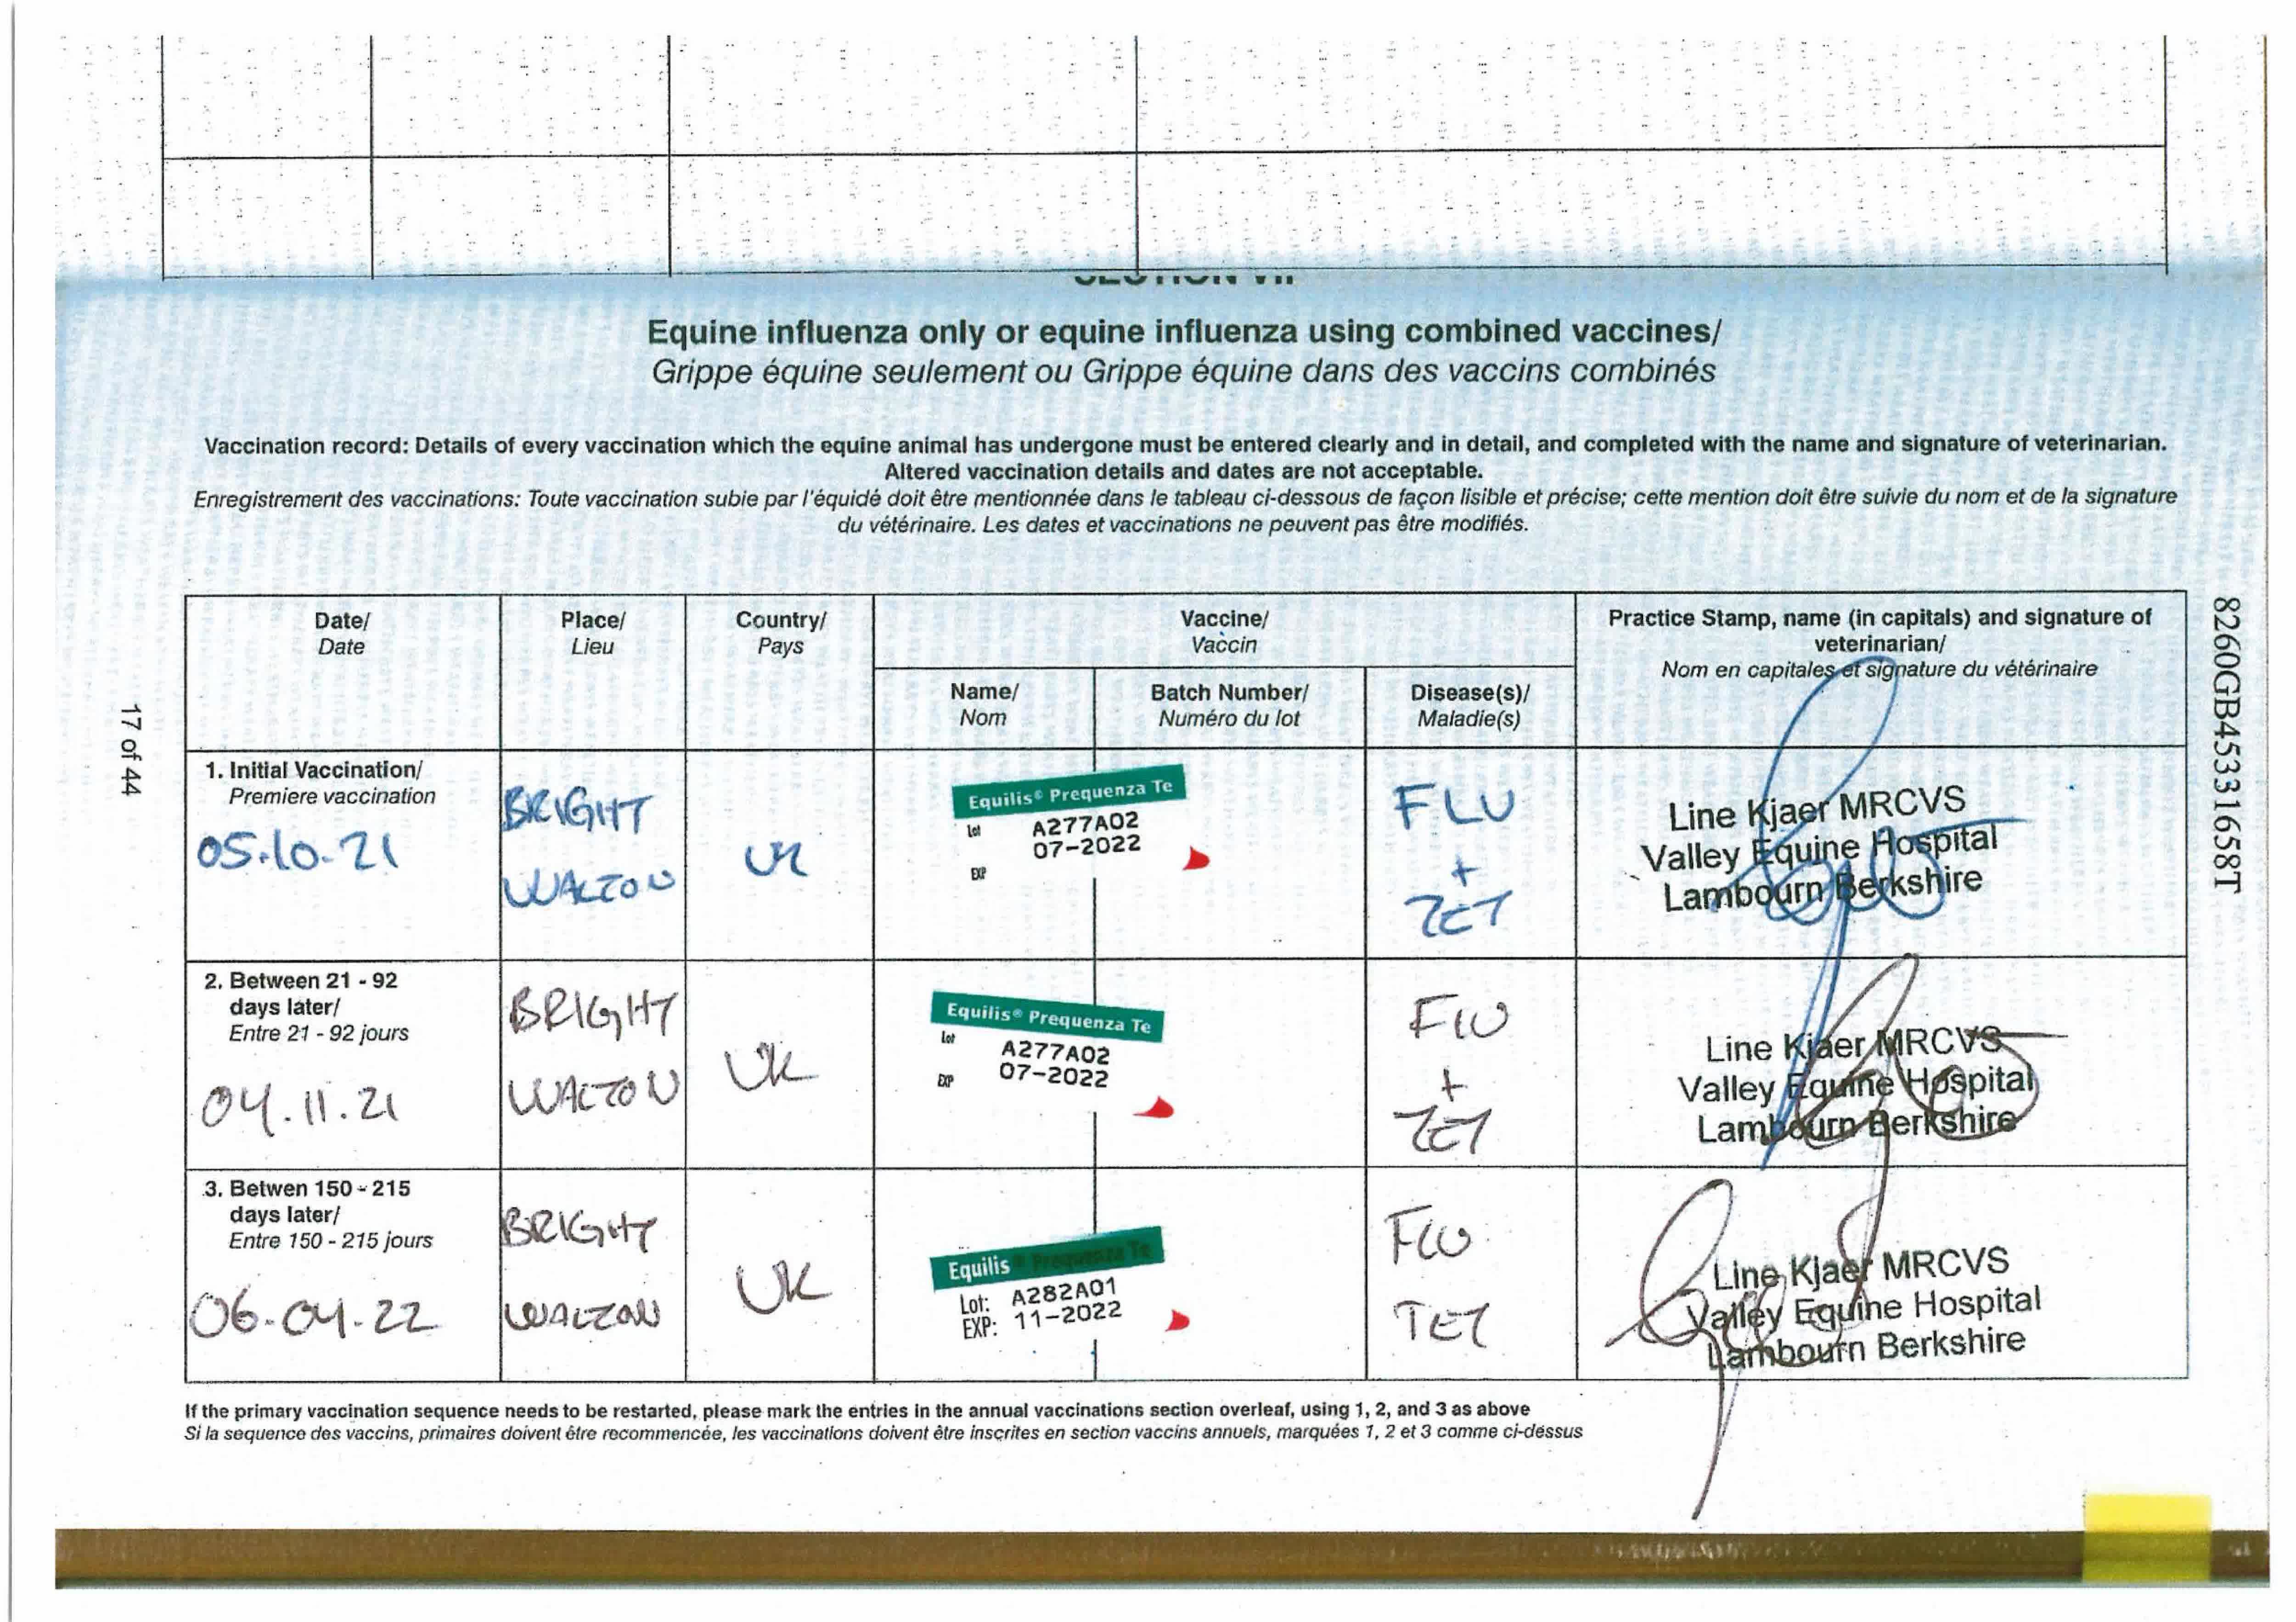 Equine influenza only or equine influenza using combined vaccines/
Grippe équine seulement ou Grippe équine dans des vaccins combinés
Vaccination record: Details of every vaccination which the equine animal has undergone must be entered clearly and in detail, and completed with the name and signature of veterinarian.
Altered vaccination details and dates are not acceptable.
Enregistrement des vaccinations: Toute vaccination subie par l'équidé doit être mentionnée dans le tableau ci-dessous de façon lisible et précise; cette mention doit être suivie du nom et de la signature
du vétérinaire. Les dates et vaccinations ne peuvent pas être modifiés.
Date/
Date
Place/
Lieu
Country/
Pays
Vaccine/
Vaccin
Practice Stamp, name (in capitals) and signature of
veterinarian/
Nom en capitales et signature du vétérinaire
Name/
Nom
Batch Number/
Numéro du lot
Disease(s)/
Maladie(s)
1. Initial Vaccination/
Premiere vaccination
05.10.21
BRIGHT
WALTON
UK
Equilis® Prequenza Te
Lot A277A02
07-2022
EXP
FLU
+
TET
Line Kjaer MRCVS
Valley Equine Hospital
Lambourn Berkshire
2. Between 21 - 92
days later/
Entre 21 - 92 jours
04.11.21
BRIGHT
WALTON
UK
Equilis® Prequenza Te
Lot A277A02
EXP 07-2022
FLU
+
TET
Line Kjaer MRCVS
Valley Equine Hospital
Lambourn Berkshire
3. Betwen 150 - 215
days later/
Entre 150 - 215 jours
06.04.22
BRIGHT
WALTON
UK
Equilis® Prequenza Te
Lot: A282A01
EXP: 11-2022
FLU
TET
Line Kjaer MRCVS
Valley Equine Hospital
Lambourn Berkshire
If the primary vaccination sequence needs to be restarted, please mark the entries in the annual vaccinations section overleaf, using 1, 2, and 3 as above
Si la sequence des vaccins, primaires doivent être recommencée, les vaccinations doivent être inscrites en section vaccins annuels, marquées 1, 2 et 3 comme ci-dessus
17 of 44
8260GB45331658T